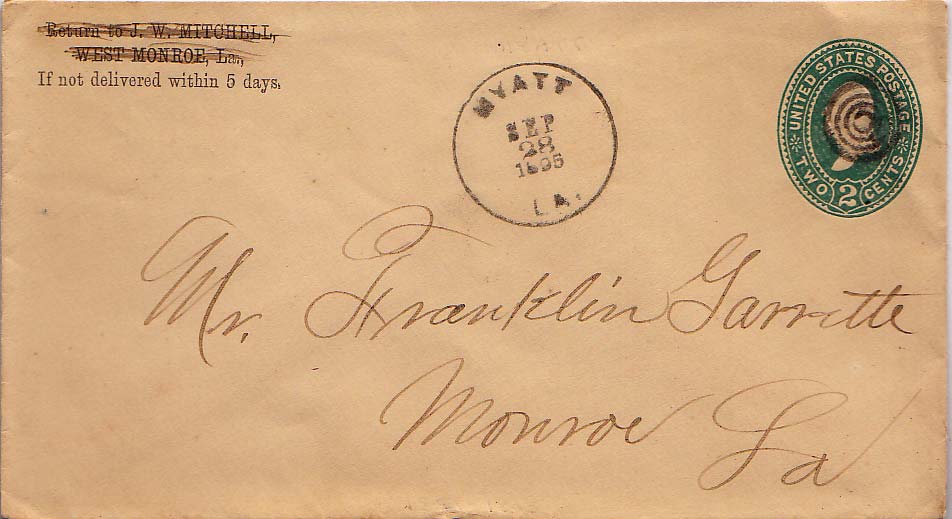 Return to J. W. MITCHELL,
WEST MONROE, La.,
If not delivered within 5 days.
MYATT
SEP
28
1895
LA.
UNITED STATES POSTAGE
TWO 2 CENTS
Mr. Franklin Garrette
Monroe La